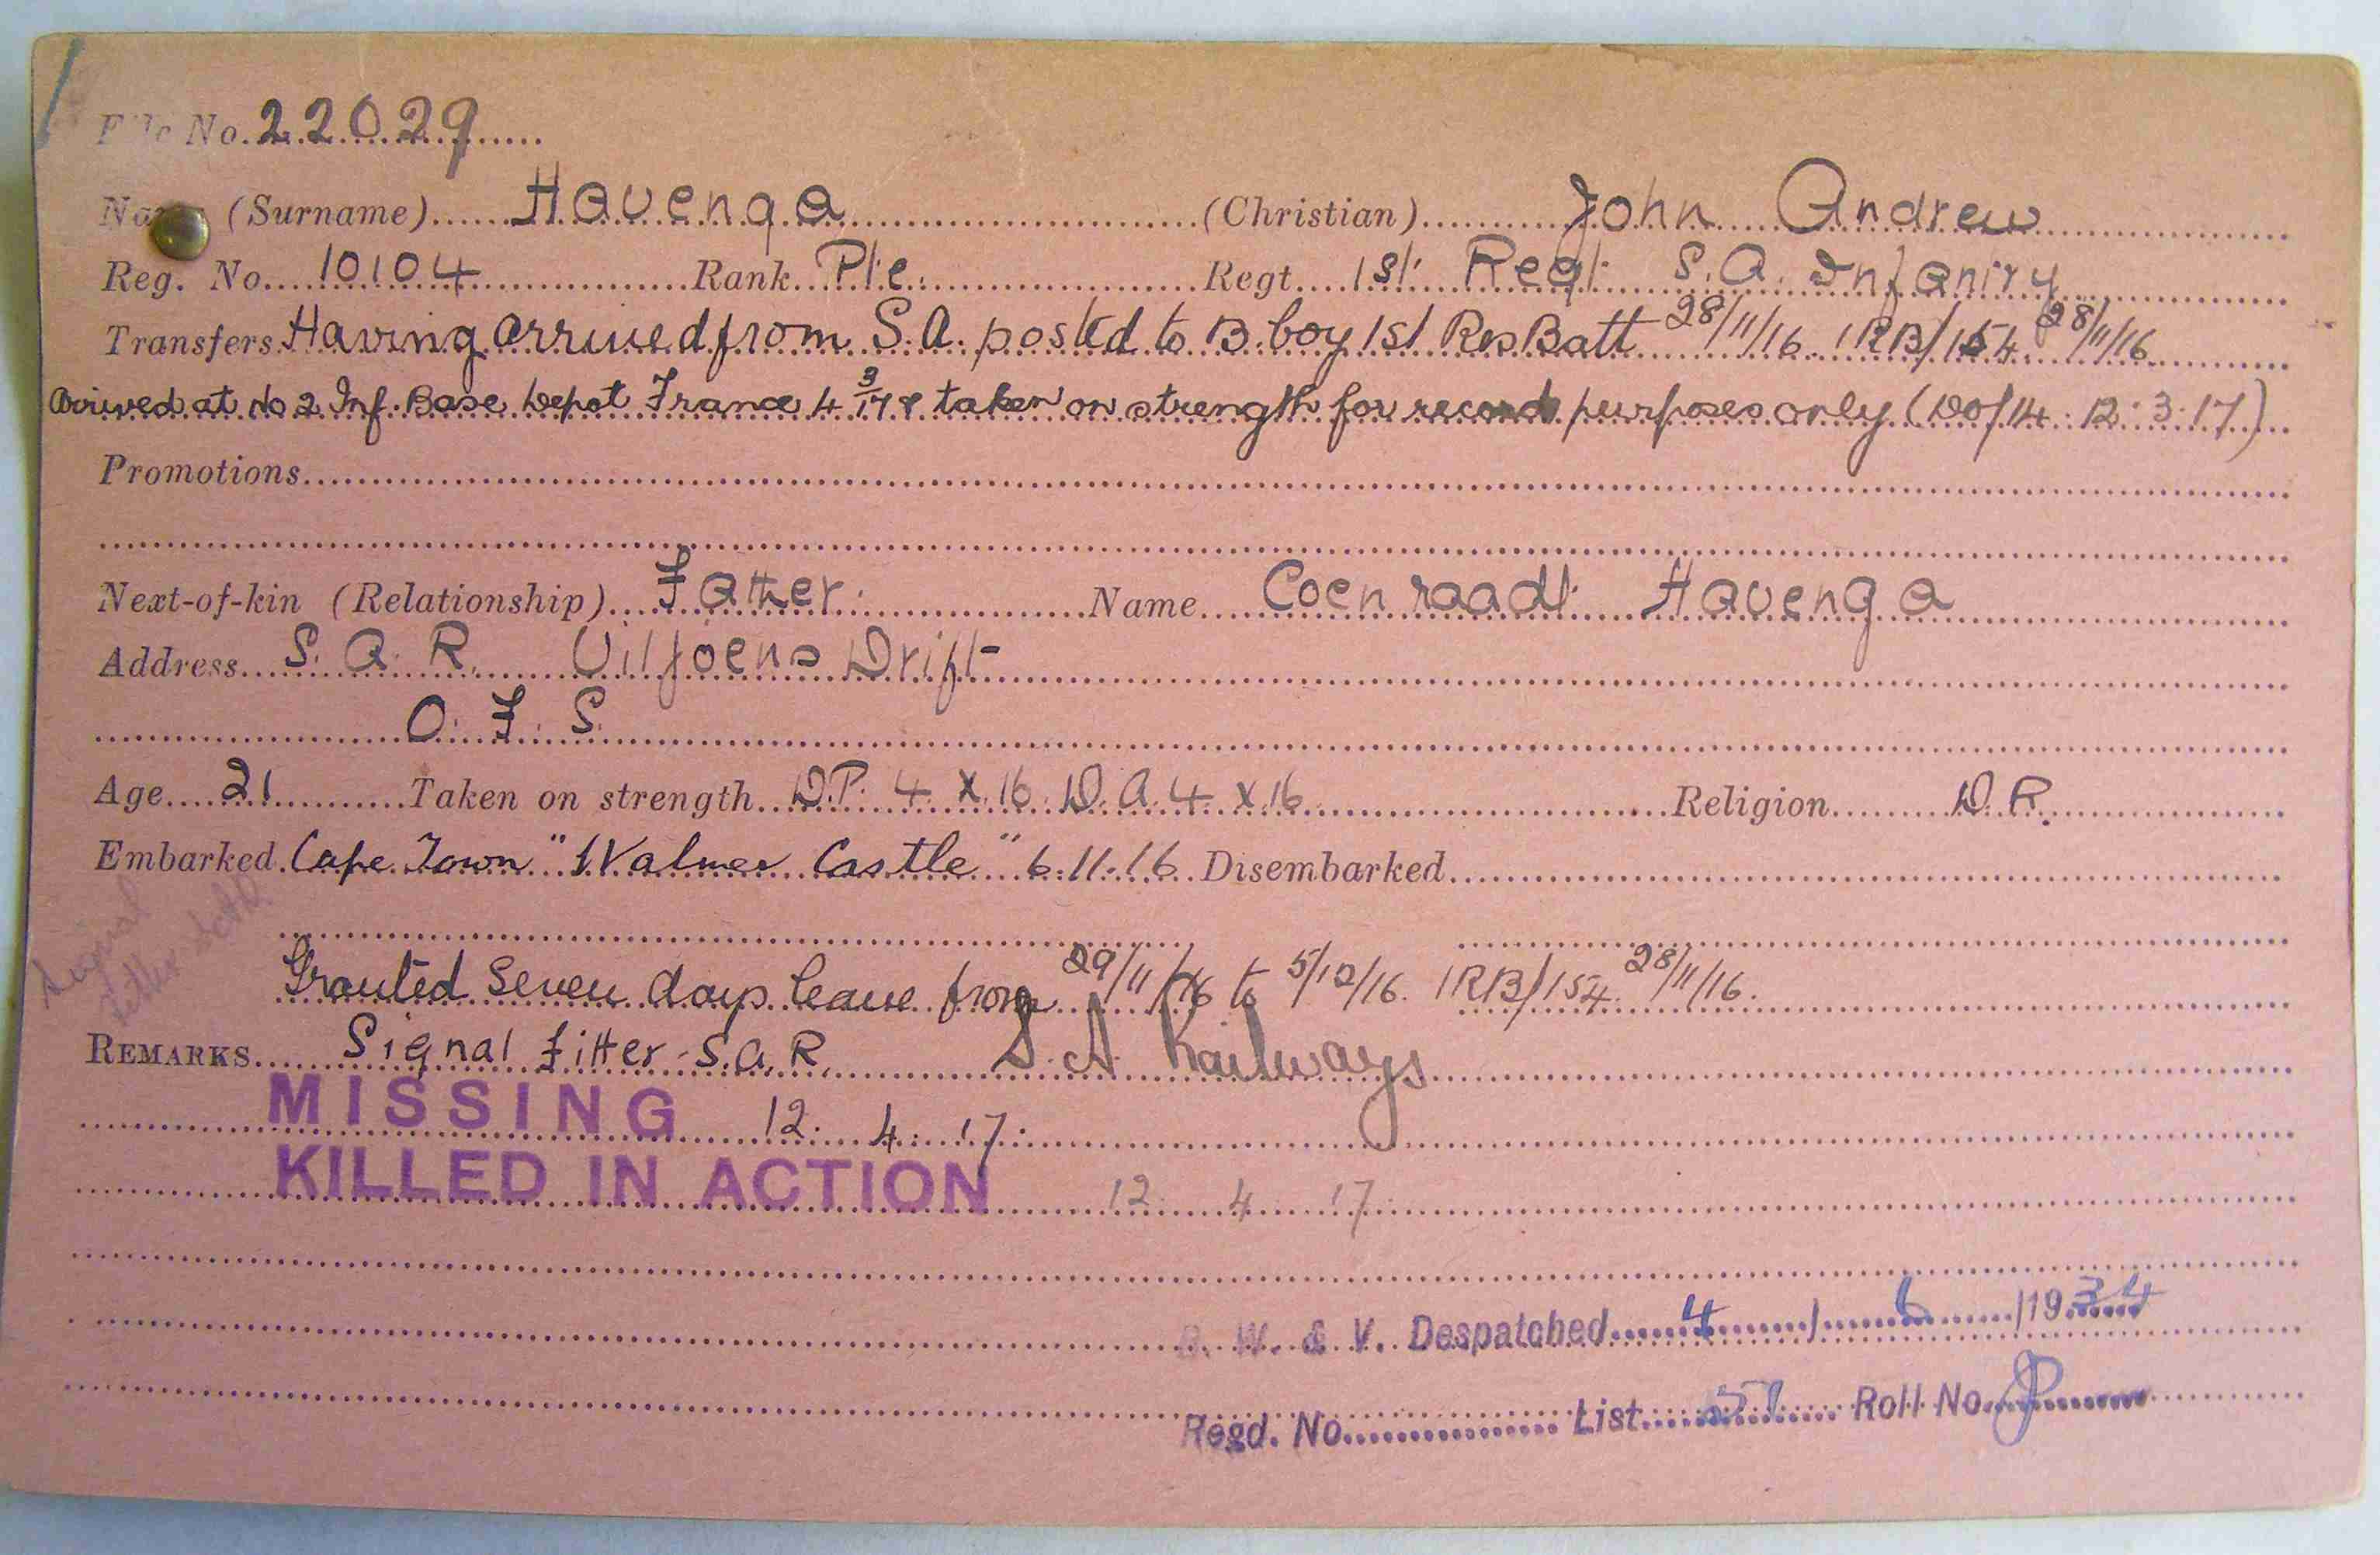 File No. 22029
Name (Surname) Havenga (Christian) John Andrew
Reg. No. 10104 Rank Pte. Regt. 1st Regt S.A. Infantry
Transfers Having arrived from S.A. posted to B. Coy 1st Res Batt 28/11/16. 1RB/154 28/11/16
Arrived at No 2 Inf. Base Depot France 4/3/17 & taken on strength for record purposes only (DO/14. 12.3.17)
Promotions
Next-of-kin (Relationship) Father. Name Coenraadt Havenga
Address S. A. R. Viljoens Drift
O. F. S.
Age 21 Taken on strength D.P. 4 X 16 D.A. 4 X 16 Religion D.R.
Embarked Cape Town "Walmer Castle" 6.11.16 Disembarked
Granted seven days leave from 29/11/16 to 5/12/16. 1RB/154 28/11/16.
Signal
REMARKS Signal Fitter S.A.R. S. A. Railways
MISSING 12. 4. 17.
KILLED IN ACTION 12. 4. 17.
B. W. & V. Despatched 4/6/1934
Regd. No. List 57 Roll No.